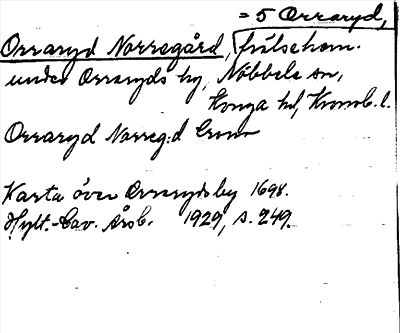 = 5 Orraryd,
Orraryd Norregård, frälsehem.
under Orraryds by, Nöbbele sn,
Konga hd, Kronob. l.
Orraryd Norreg:d
Karta över Orraryds by 1698.
Hylt.-Cav. Årsb. 1929, s. 249.